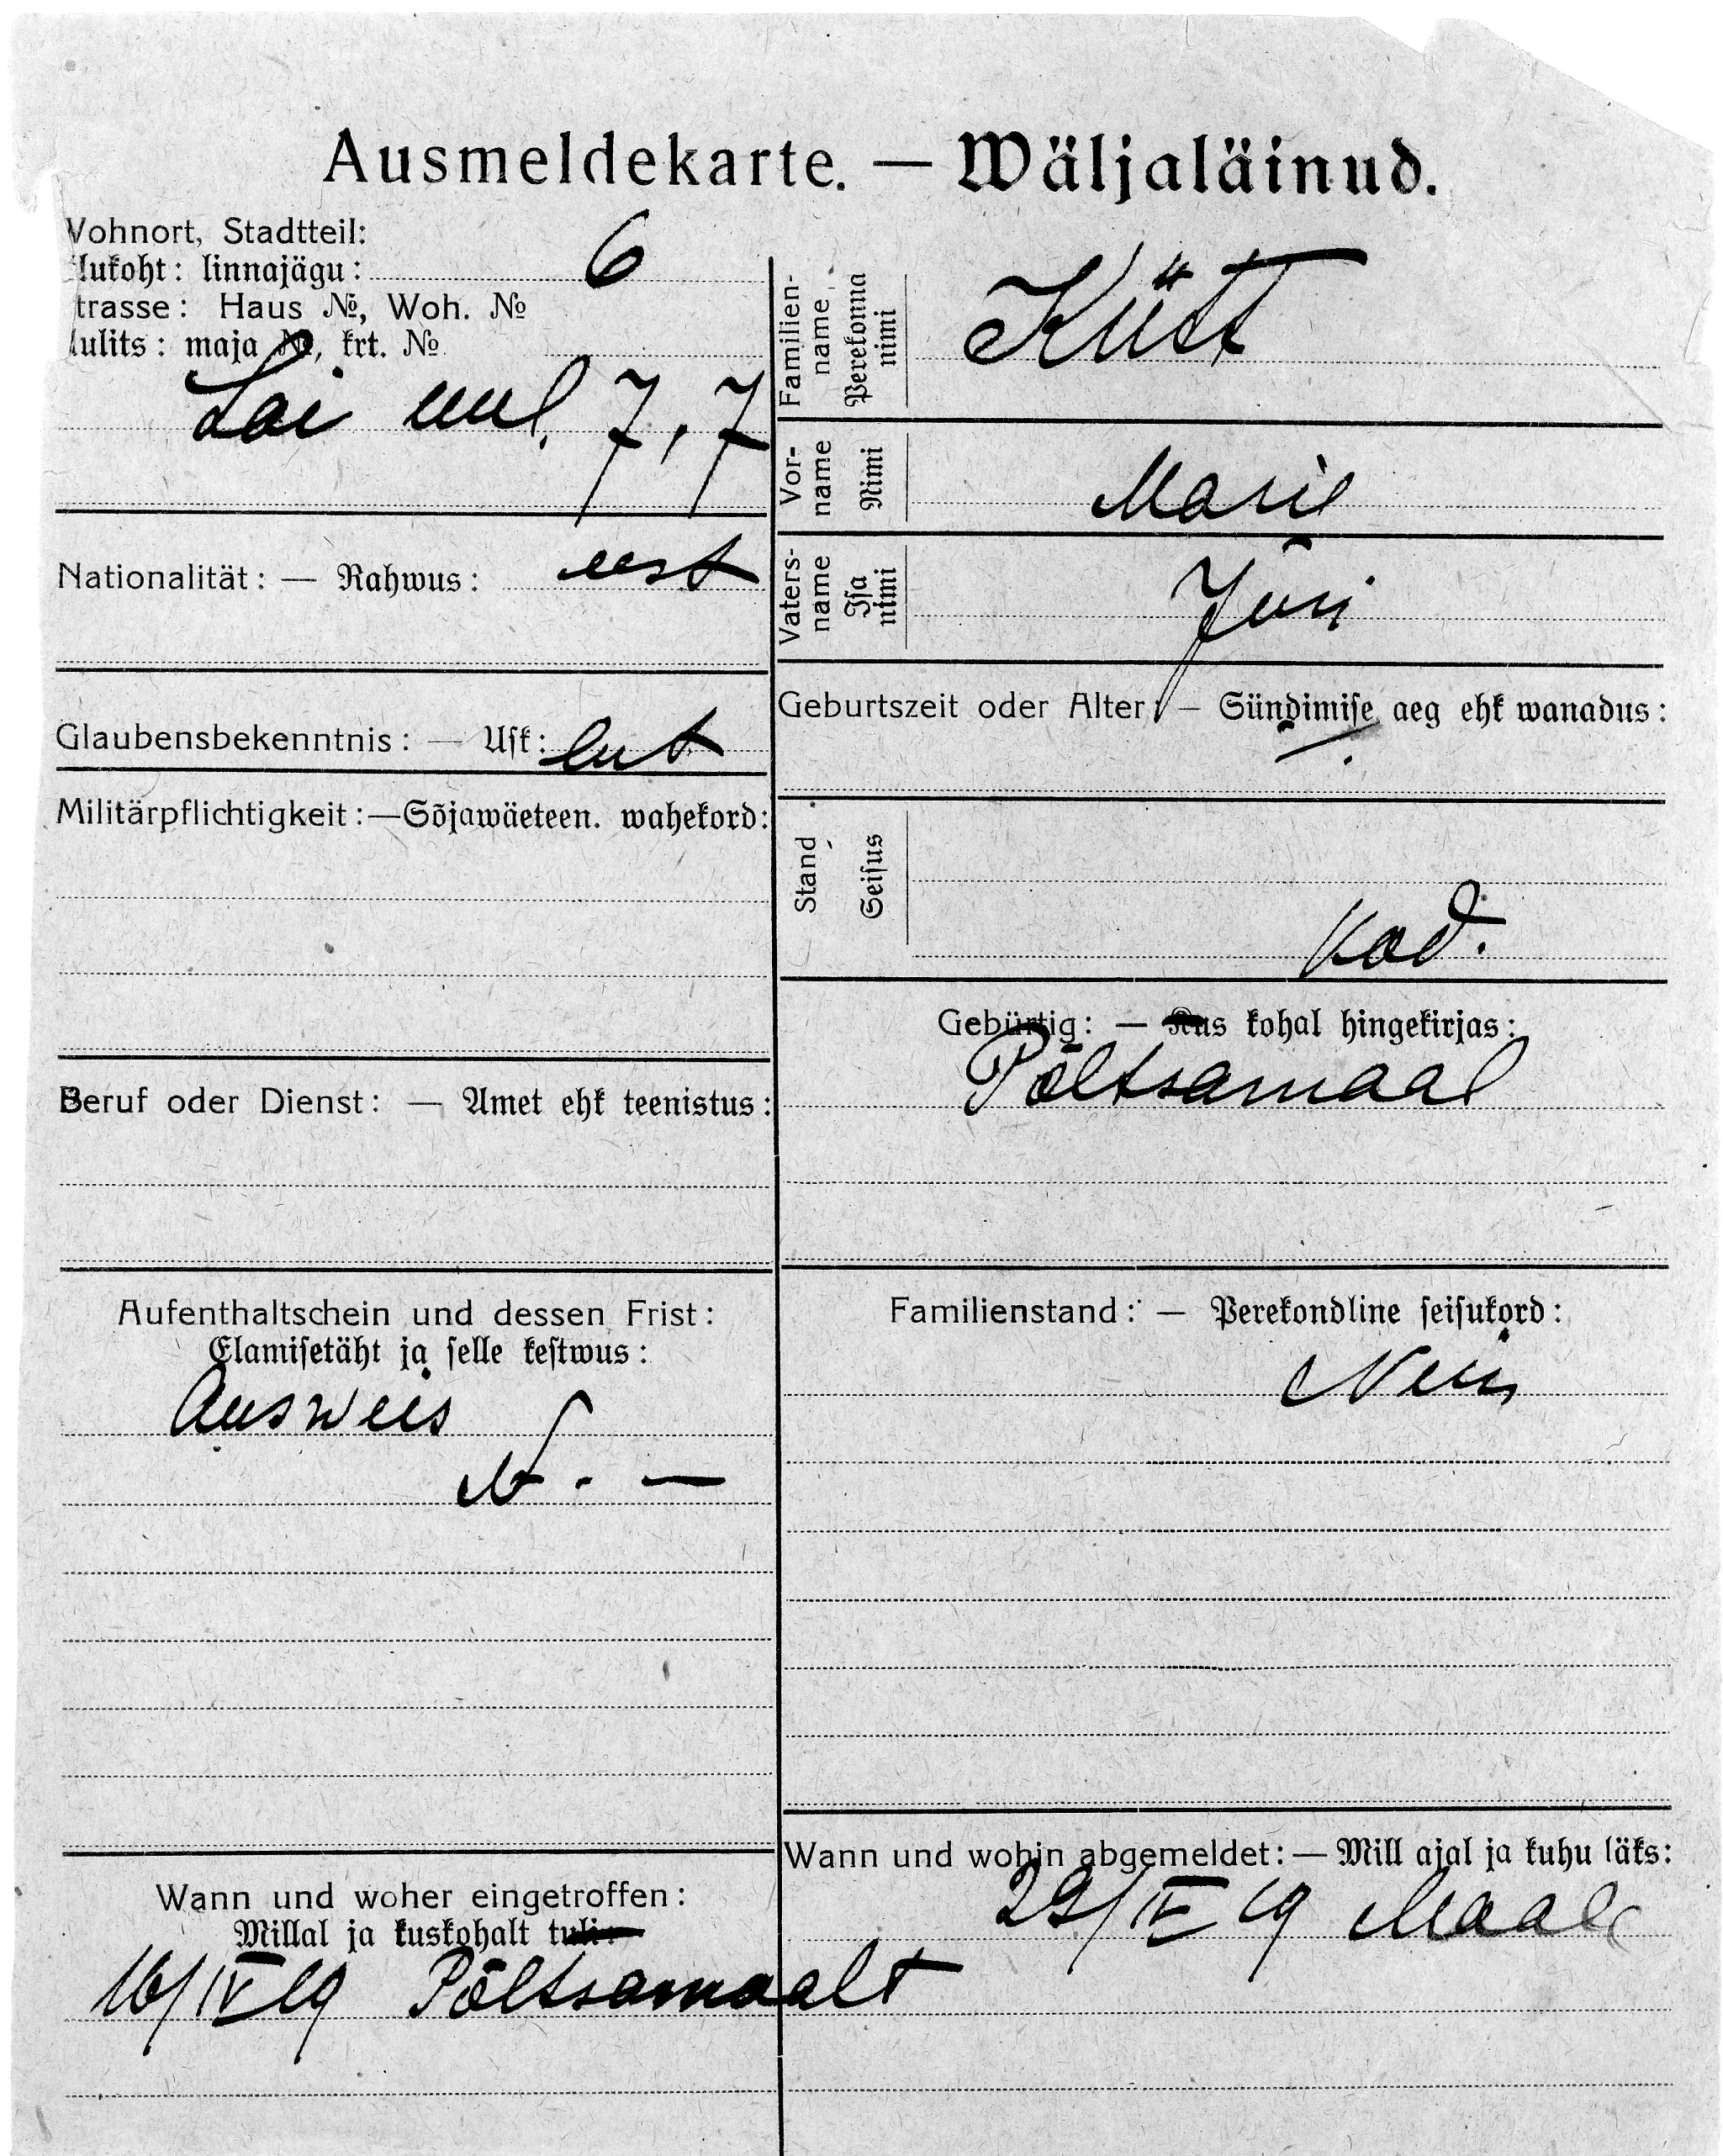 Ausmeldekarte. — Wäljaläinud.
Wohnort, Stadtteil:
Elukoht: linnajägu: 6
Strasse: Haus №, Woh. №
Uulits: maja №, krt. №
Lai uul. 7, 7
Nationalität: — Rahwus: eest
Glaubensbekenntnis: — Usk: lut
Militärpflichtigkeit: — Sõjawäeteen. wahekord:
Beruf oder Dienst: — Amet ehk teenistus:
Aufenthaltschein und dessen Frist:
Elamisetäht ja selle kestwus:
Ausweis
№. —
Wann und woher eingetroffen:
Millal ja kuskohalt tuli:
16/IV 19 Põltsamaalt
Familien-
name
Perekonna
nimi
Kütt
Vor-
name
Nimi
Marie
Vaters-
name
Isa
nimi
Jüri
Geburtszeit oder Alter: — Sündimise aeg ehk wanadus:
Stand
Seisus
kod.
Gebürtig: — Kus kohal hingekirjas:
Põltsamaal
Familienstand: — Perekondline seisukord:
Neiu
Wann und wohin abgemeldet: — Mill ajal ja kuhu läks:
19 Maale